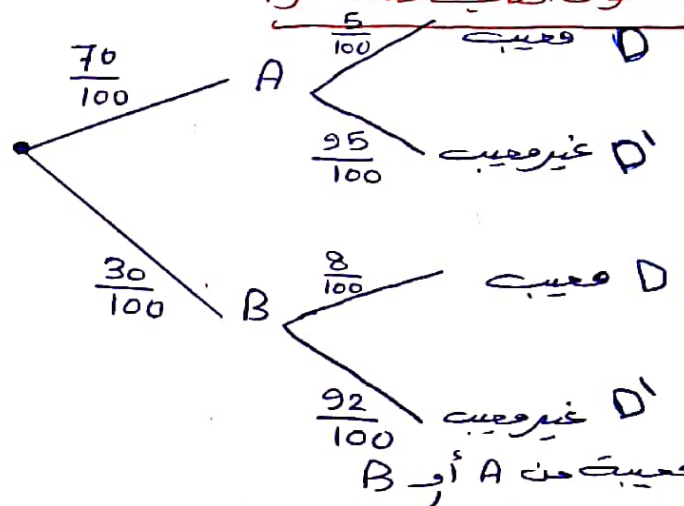 5/100 معيب D
70/100 A
95/100 غير معيب D'
30/100 B
8/100 معيب D
92/100 غير معيب D'
معيبة من A أو B